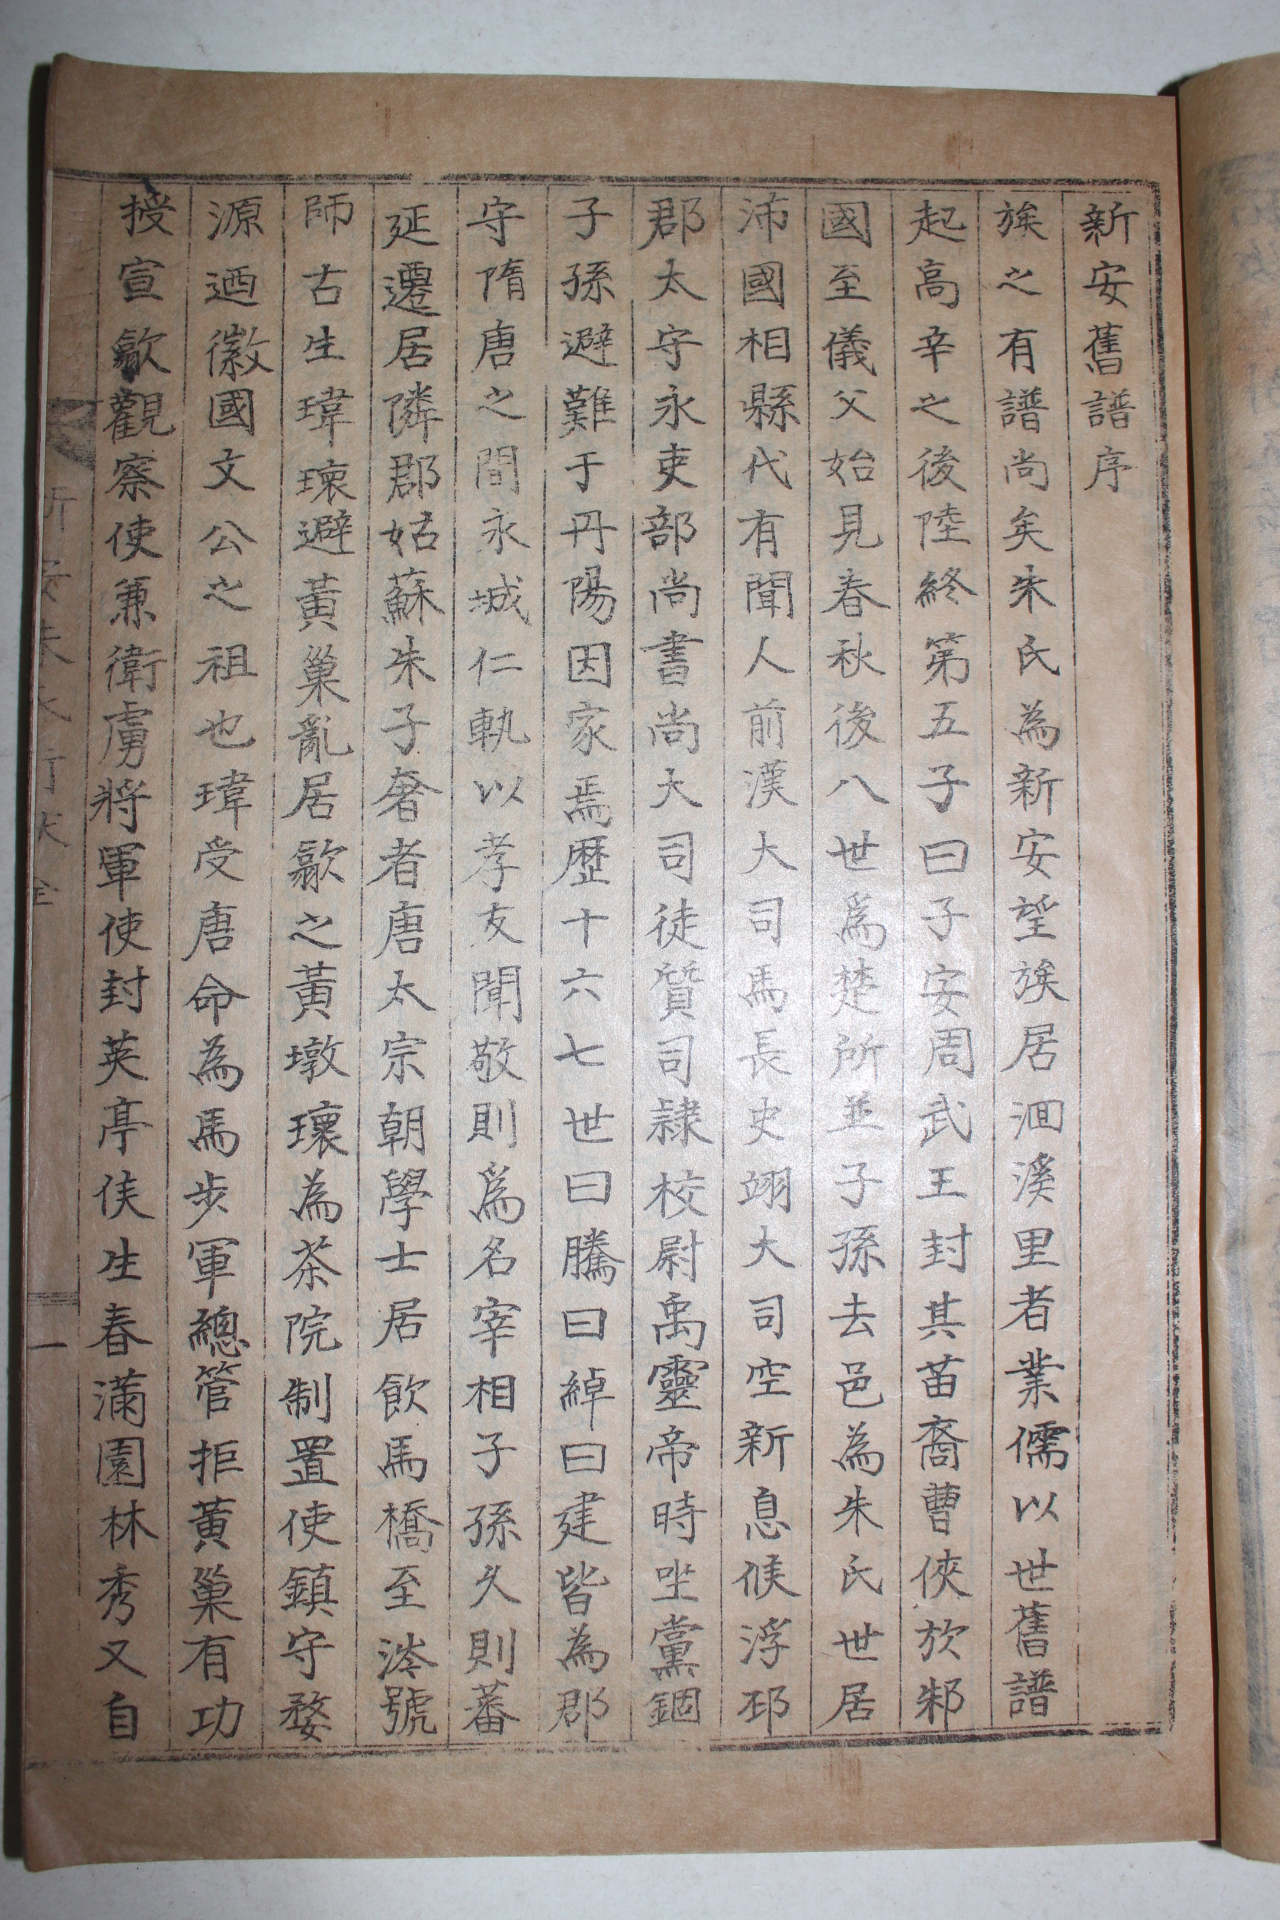 新安舊譜序
族之有譜尚矣朱氏為新安望族居洄溪里者業儒以世舊譜
起高辛之後陸終第五子曰子安周武王封其苗裔曹俠於邾
國至儀父始見春秋後八世爲楚所並子孫去邑為朱氏世居
沛國相縣代有聞人前漢大司馬長史翊大司空新息侯浮邳
郡太守永吏部尚書尚大司徒質司隷校尉禹靈帝時坐黨錮
子孫避難于丹陽因家焉歷十六七世曰騰曰綽曰建皆為郡
守隋唐之間永城仁軌以孝友聞敬則爲名宰相子孫久則蕃
延遷居隣郡姑蘇朱子奢者唐太宗朝學士居飮馬橋至涔號
師古生瑋瓌避黃巢亂居歙之黃墩瓌為茶院制置使鎮守婺
源迺徽國文公之祖也瑋受唐命為馬步軍總管拒黃巢有功
授宣歙觀察使兼衛虜將軍使封英亭侯生春滿園林秀又自
新安朱氏行狀全
一